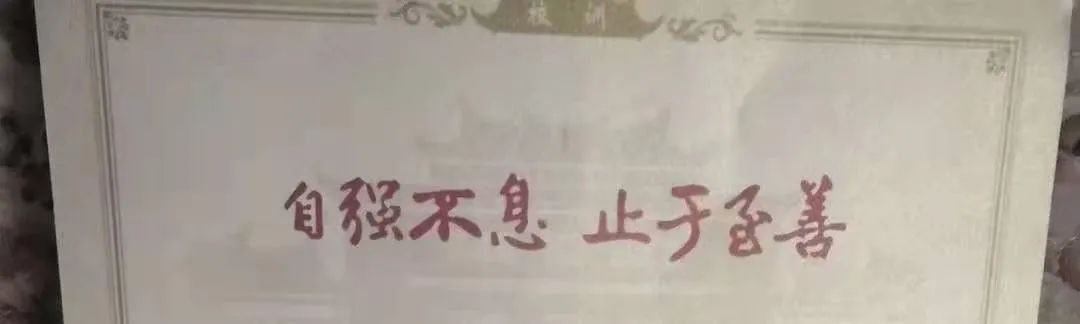 校训
自强不息 止于至善